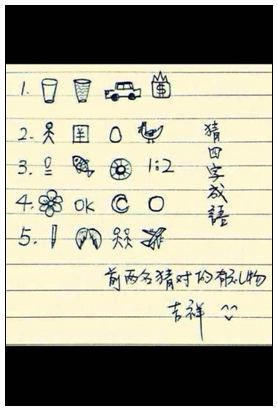 1. $
2.
3. 1:2
4. OK
5.
猜四字成語
前两名猜对的有礼物
吉祥